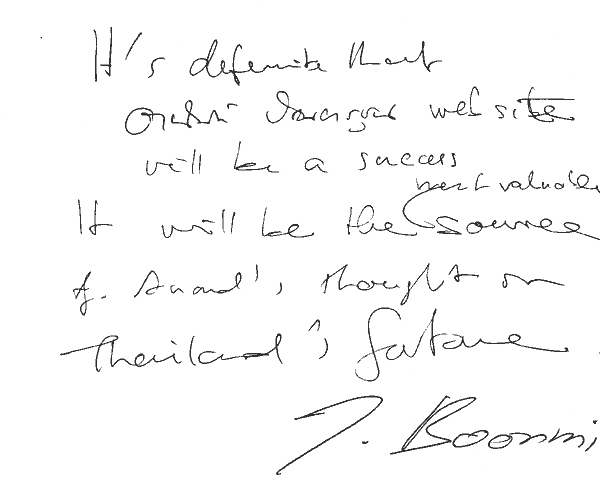 It's definite that
website
will be a success
most valuable
It will be the source
of. Anand's thought on
Thailand's future.
T. Boonmi